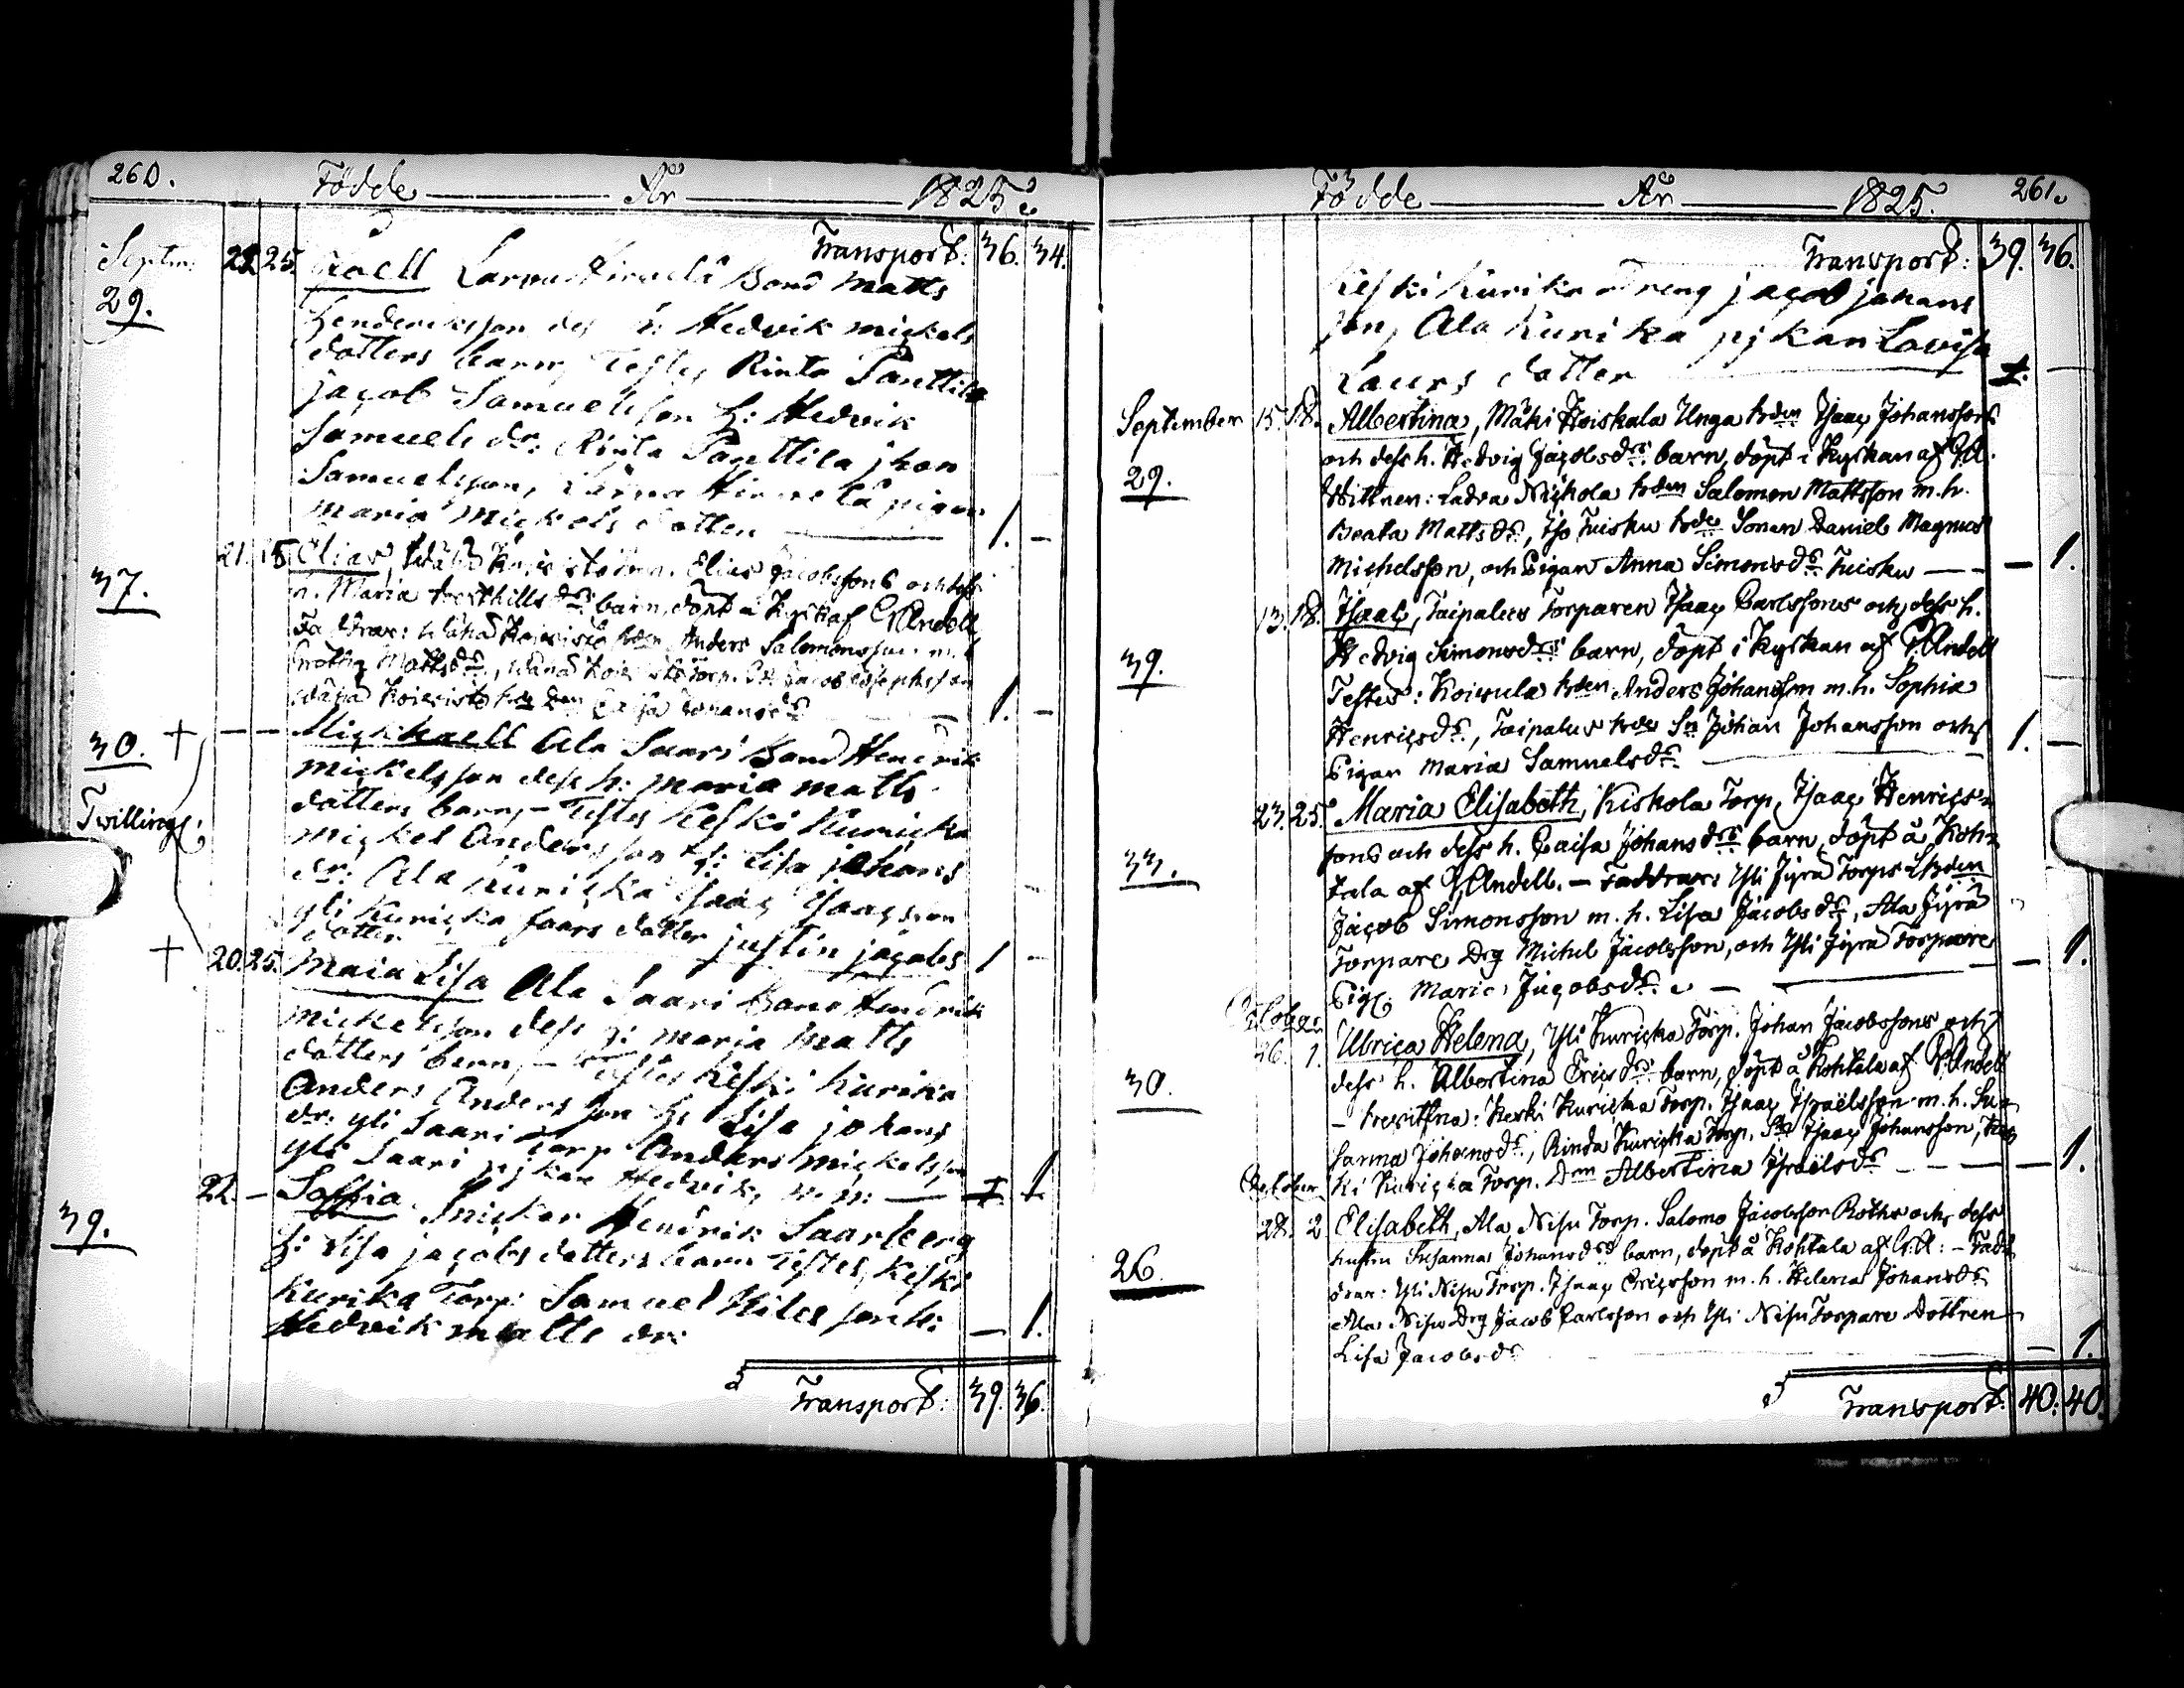 260. Födde År 1825.
Transport: 36. 34.
Septem. 22 25. Larvu Hirvelä Bond Matts
29.
Henderiksson des h: Hedvik mickels
dotters barn, Testes Rinta Panttila
jacob Samuelsson h: Hedvik
Samuels dr: Rinta Panttila johan
Samuelsson, Hirvelä pigan
maria Mickels dotter 1. –
21. 18. Elias, Wähä Koivisto Elias Jacobssons och dess
37.
h. Maria dr: barn, döpt å Kyrk af G Andell
Faddrar: Wähä Koivisto Anders Salomonsson m.h.
Matts dr, Wähä Koivisto Torp. Jacob Josephsson
Wähä Koivisto Caisa Johans dr 1. –
30. + – – Mickhaell Ala Saari Bond Hendrik
mickelsson dess h: maria matts
Twilling:
dotters barn, – Testes Keski Kuricka
mickel Andersson h: Lisa johans
dr: Ala Kuricka Isaac Isacsson
yli Kuricka faars dotter justin jacobs
dotter 1 –
+ 20. 25. Maia Lisa Ala Saari Bond Hendrik
mickelsson dess h: maria Matts
dotters barn, – Testes Keski Kurika
Anders Andersson h: Lisa johans
dr: yli Saari Torp Anders mickelsson
yli Saari pjkan Hedvik, 1
22. – Soffia Snickar Hendrik Saarberg
39.
h: Lisa jacobs dotters barn Testes, Keski
Kurika Torp: Samuel son h:
Hedvik matts dr: – 1.
Transport: 39. 36.
Födde År 1825. 261.
Transport: 39. 36.
Keski Kurika dreng jacob johans
son, Ala Kurika pjkan Lovisa
Laurs dotter 1. –
September 15. 18. Albertina, Mäki Koiskala Unga Isaac Johanssons
och dess h. Hedvig Jacobs drs barn, döpt i Kyrkan af G.A.
29.
Wittnen: Ladva Salomon Mattsson m. h.
Beata Matts dr, Iso Tuisku Sonen Daniel Magnus
Michelsson, och Pigan Anna Simons dr Tuisku – 1.
13. 18. Isaac, Taipalus Torparen Isaac Carlssons och dess h.
39.
Hedvig Simons drs barn, döpt i Kyrkan af G Andell
Testes: Koivula Anders Johansson m. h. Sophia
Henrics dr, Taipalus Sn Johan Johansson och
Pigan Maria Samuels dr. 1. –
23. 25. Maria Elisabeth, Kiskola Torp, Isaac Henrics-
sons och dess h. Caisa Johans drs barn, döpt å Koh-
33.
tala af G Andell. – Faddrar: Yli Jyrä Torps
Jacob Simonsson m. h. Lisa Jacobs dr, Ala Jyrä
Torpare Drg Michel Jacobsson, och Yli Jyrä Torpare
Pig: Maria Jacobs dr. – 1.
October
26. 1. Ulrica Helena, Yli Kuricka Torp. Johan Jacobssons och
dess h. Albertina Erics drs barn, döpt å Kohtala af G Andell
30.
– : Keski Kuricka Torp. Isaac Israelsson m. h. Su-
sanna Johans dr, Rinda Kuricka Torp. Sn Isaac Johansson, Kes-
ki Kuricka Torp. Dm Albertina Israels dr – – – 1.
October
28. 2 Elisabeth, Ala Nisu Torp. Salomo Jacobsson Roths och dess
hustru Susanna Johans drs barn, döpt å Kohtala af G.A: – Fadd
26.
drar: Yli Nisu Torp. Isaac Ericsson m. h. Helena Johans dr.
Ala Nisu Drg Jacob Carlsson och Yli Nisu Torpare Dottren
Lisa Jacobs dr – 1.
Transport: 40. 40.